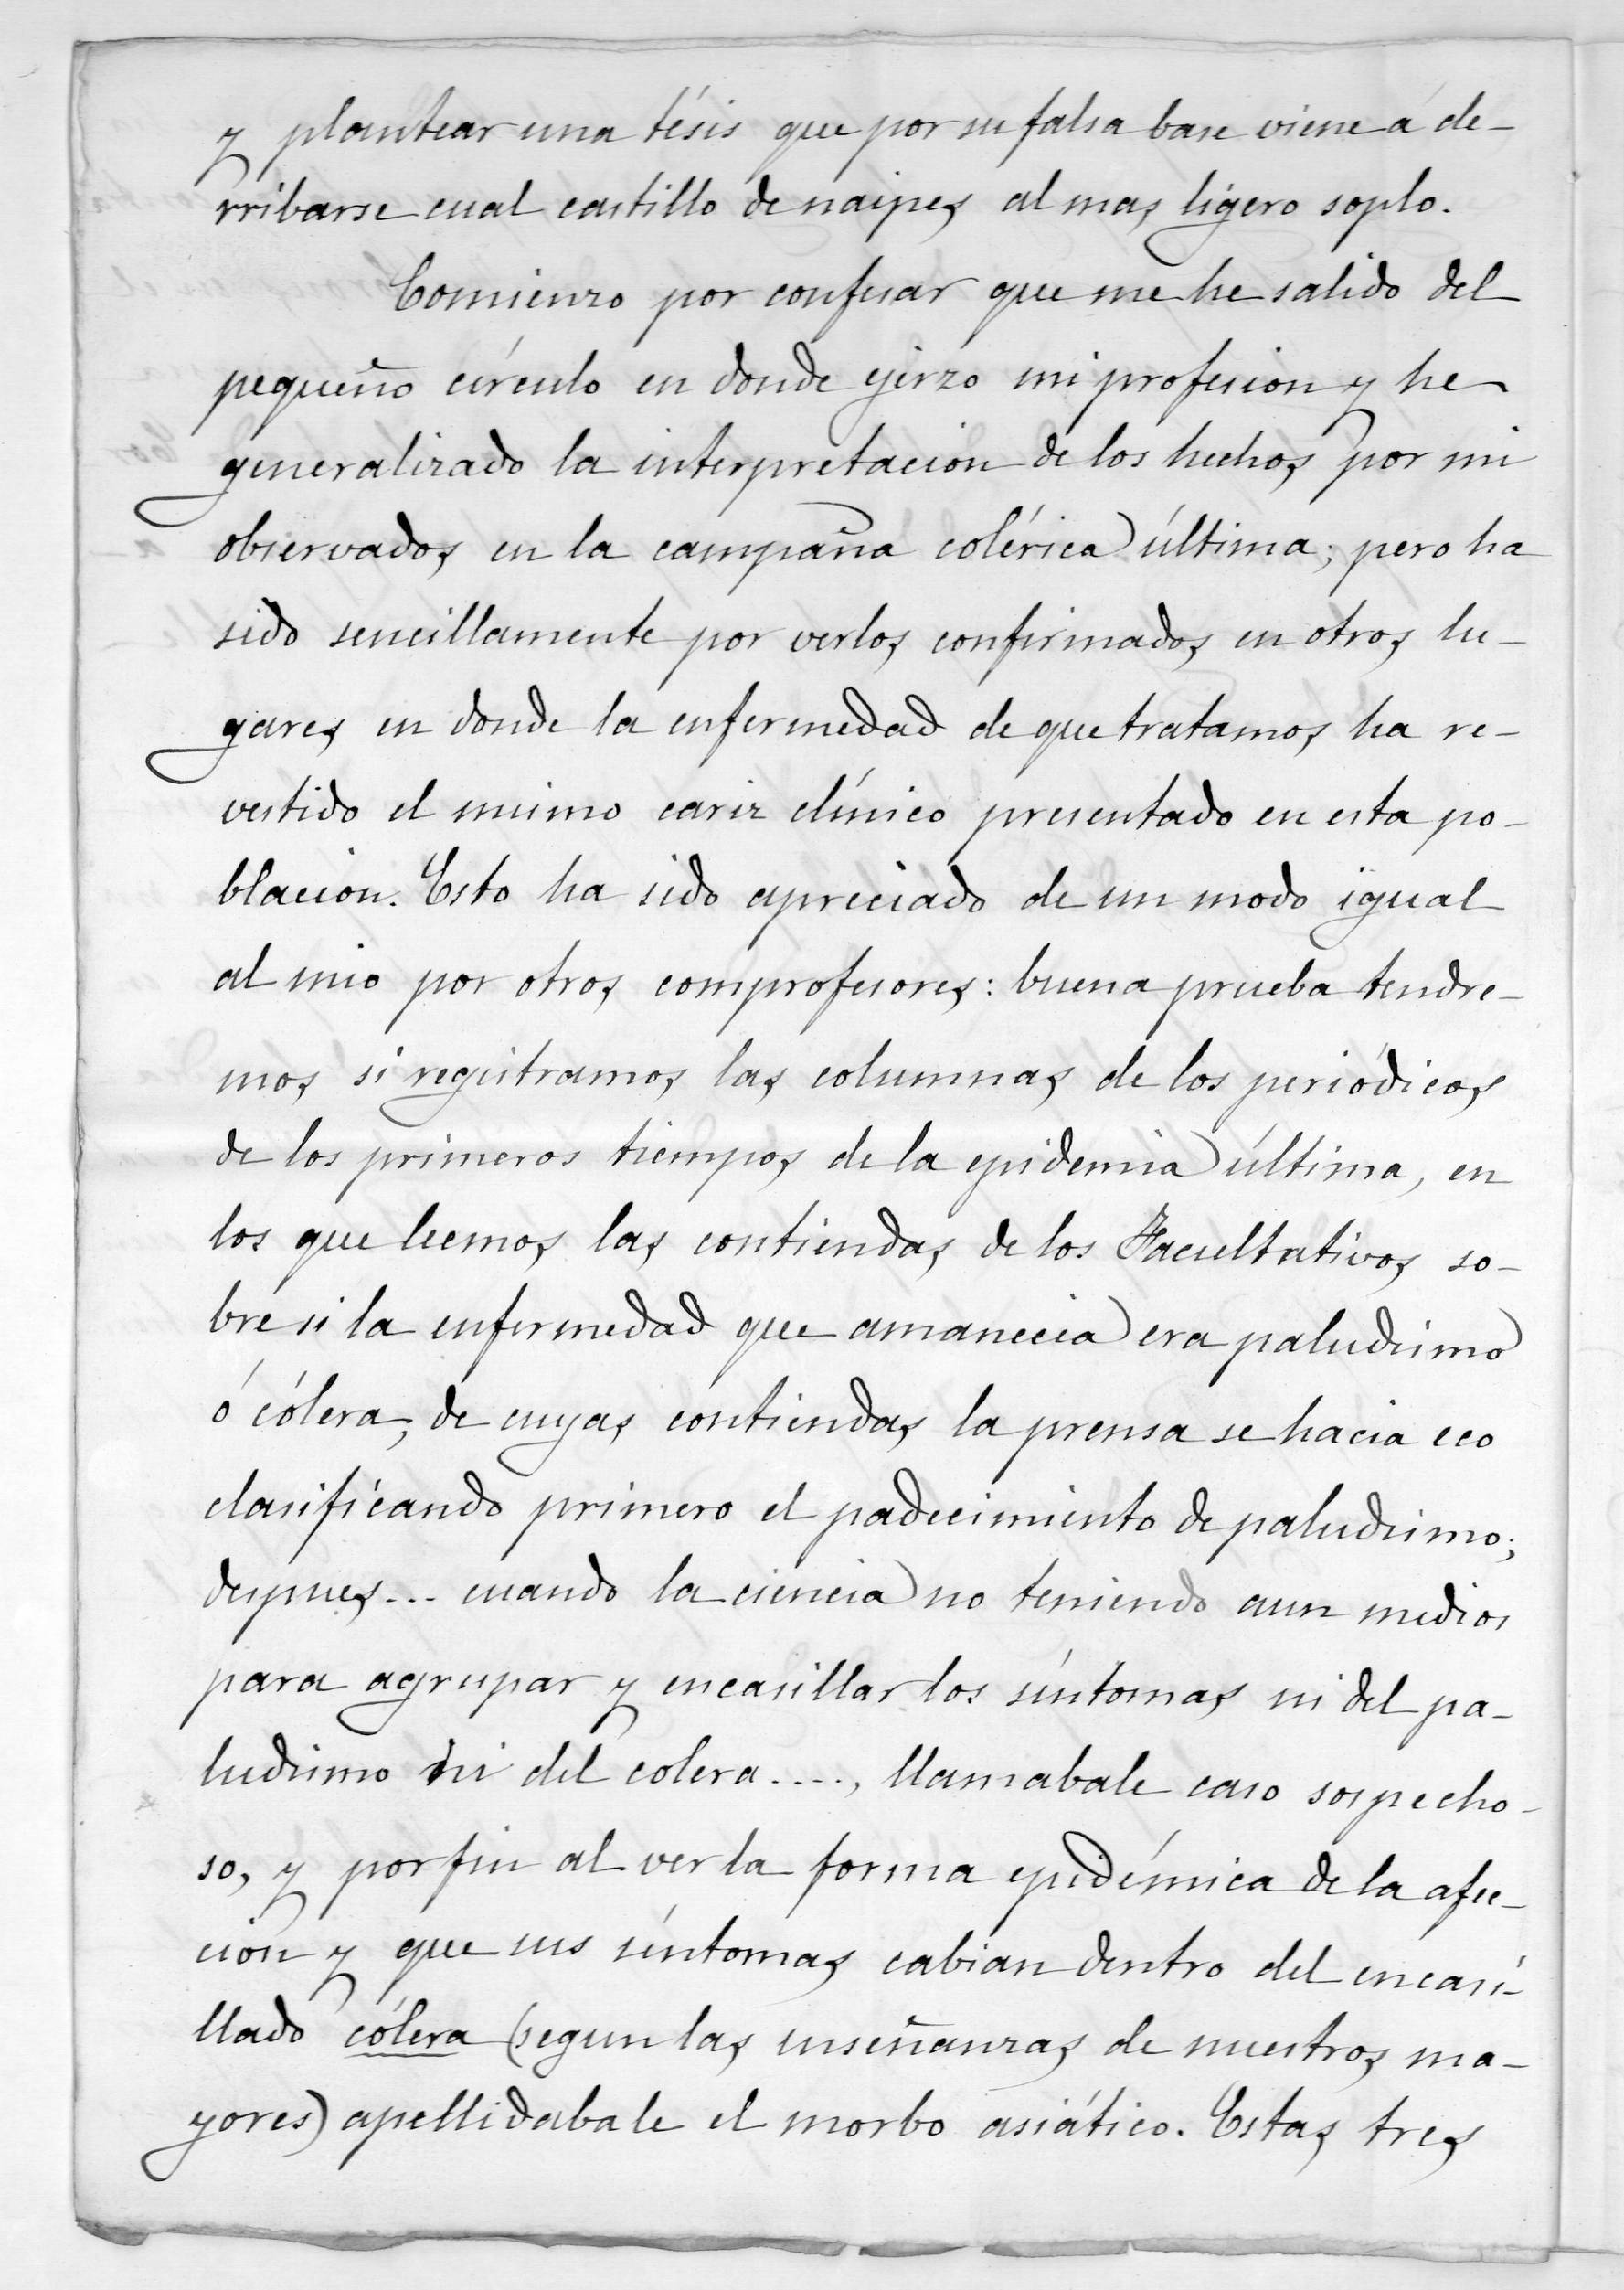 y plantear una tésis que por su falsa base viene á de-
rribarse cual castillo de naipes al mas ligero soplo.
Comienzo por confesar que me he salido del
pequeño círculo en donde ejerzo mi profesion y he
generalizado la interpretacion de los hechos por mi
observados en la campaña colérica última; pero ha
sido sencillamente por verlos confirmados en otros lu-
gares en donde la enfermedad de que tratamos ha re-
vestido el mismo cariz clínico presentado en esta po-
blacion. Esto ha sido apreciado de un modo igual
al mio por otros comprofesores: buena prueba tendre-
mos si registramos las columnas de los periódicos
de los primeros tiempos de la epidemia última, en
los que leemos las contiendas de los Facultativos so-
bre si la enfermedad que amanecia era paludismo
ó cólera; de cuyas contiendas la prensa se hacia eco
clasificando primero el padecimiento de paludismo;
despues... cuando la ciencia no teniendo aun medios
para agrupar y encasillar los síntomas ni del pa-
ludismo ni del colera...., llamabale caso sospecho-
so, y por fin al ver la forma epidémica de la afec-
cion y que sus síntomas cabian dentro del encasi-
llado cólera (segun las enseñanzas de nuestros ma-
yores) apellidabale el morbo asiático. Estas tres